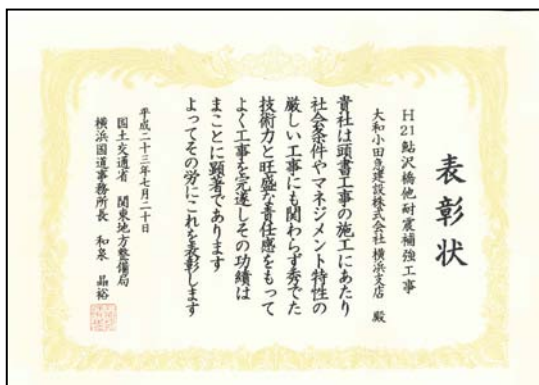 表彰状
H21鮎沢橋他耐震補強工事
大和小田急建設株式会社 横浜支店 殿
貴社は頭書工事の施工にあたり
社会条件やマネジメント特性の
厳しい工事にも関わらず秀でた
技術力と旺盛な責任感をもって
よく工事を完遂しその功績は
まことに顕著であります
よってその労にこれを表彰します
平成二十三年七月二十日
国土交通省 関東地方整備局
横浜国道事務所長 和泉 晶裕